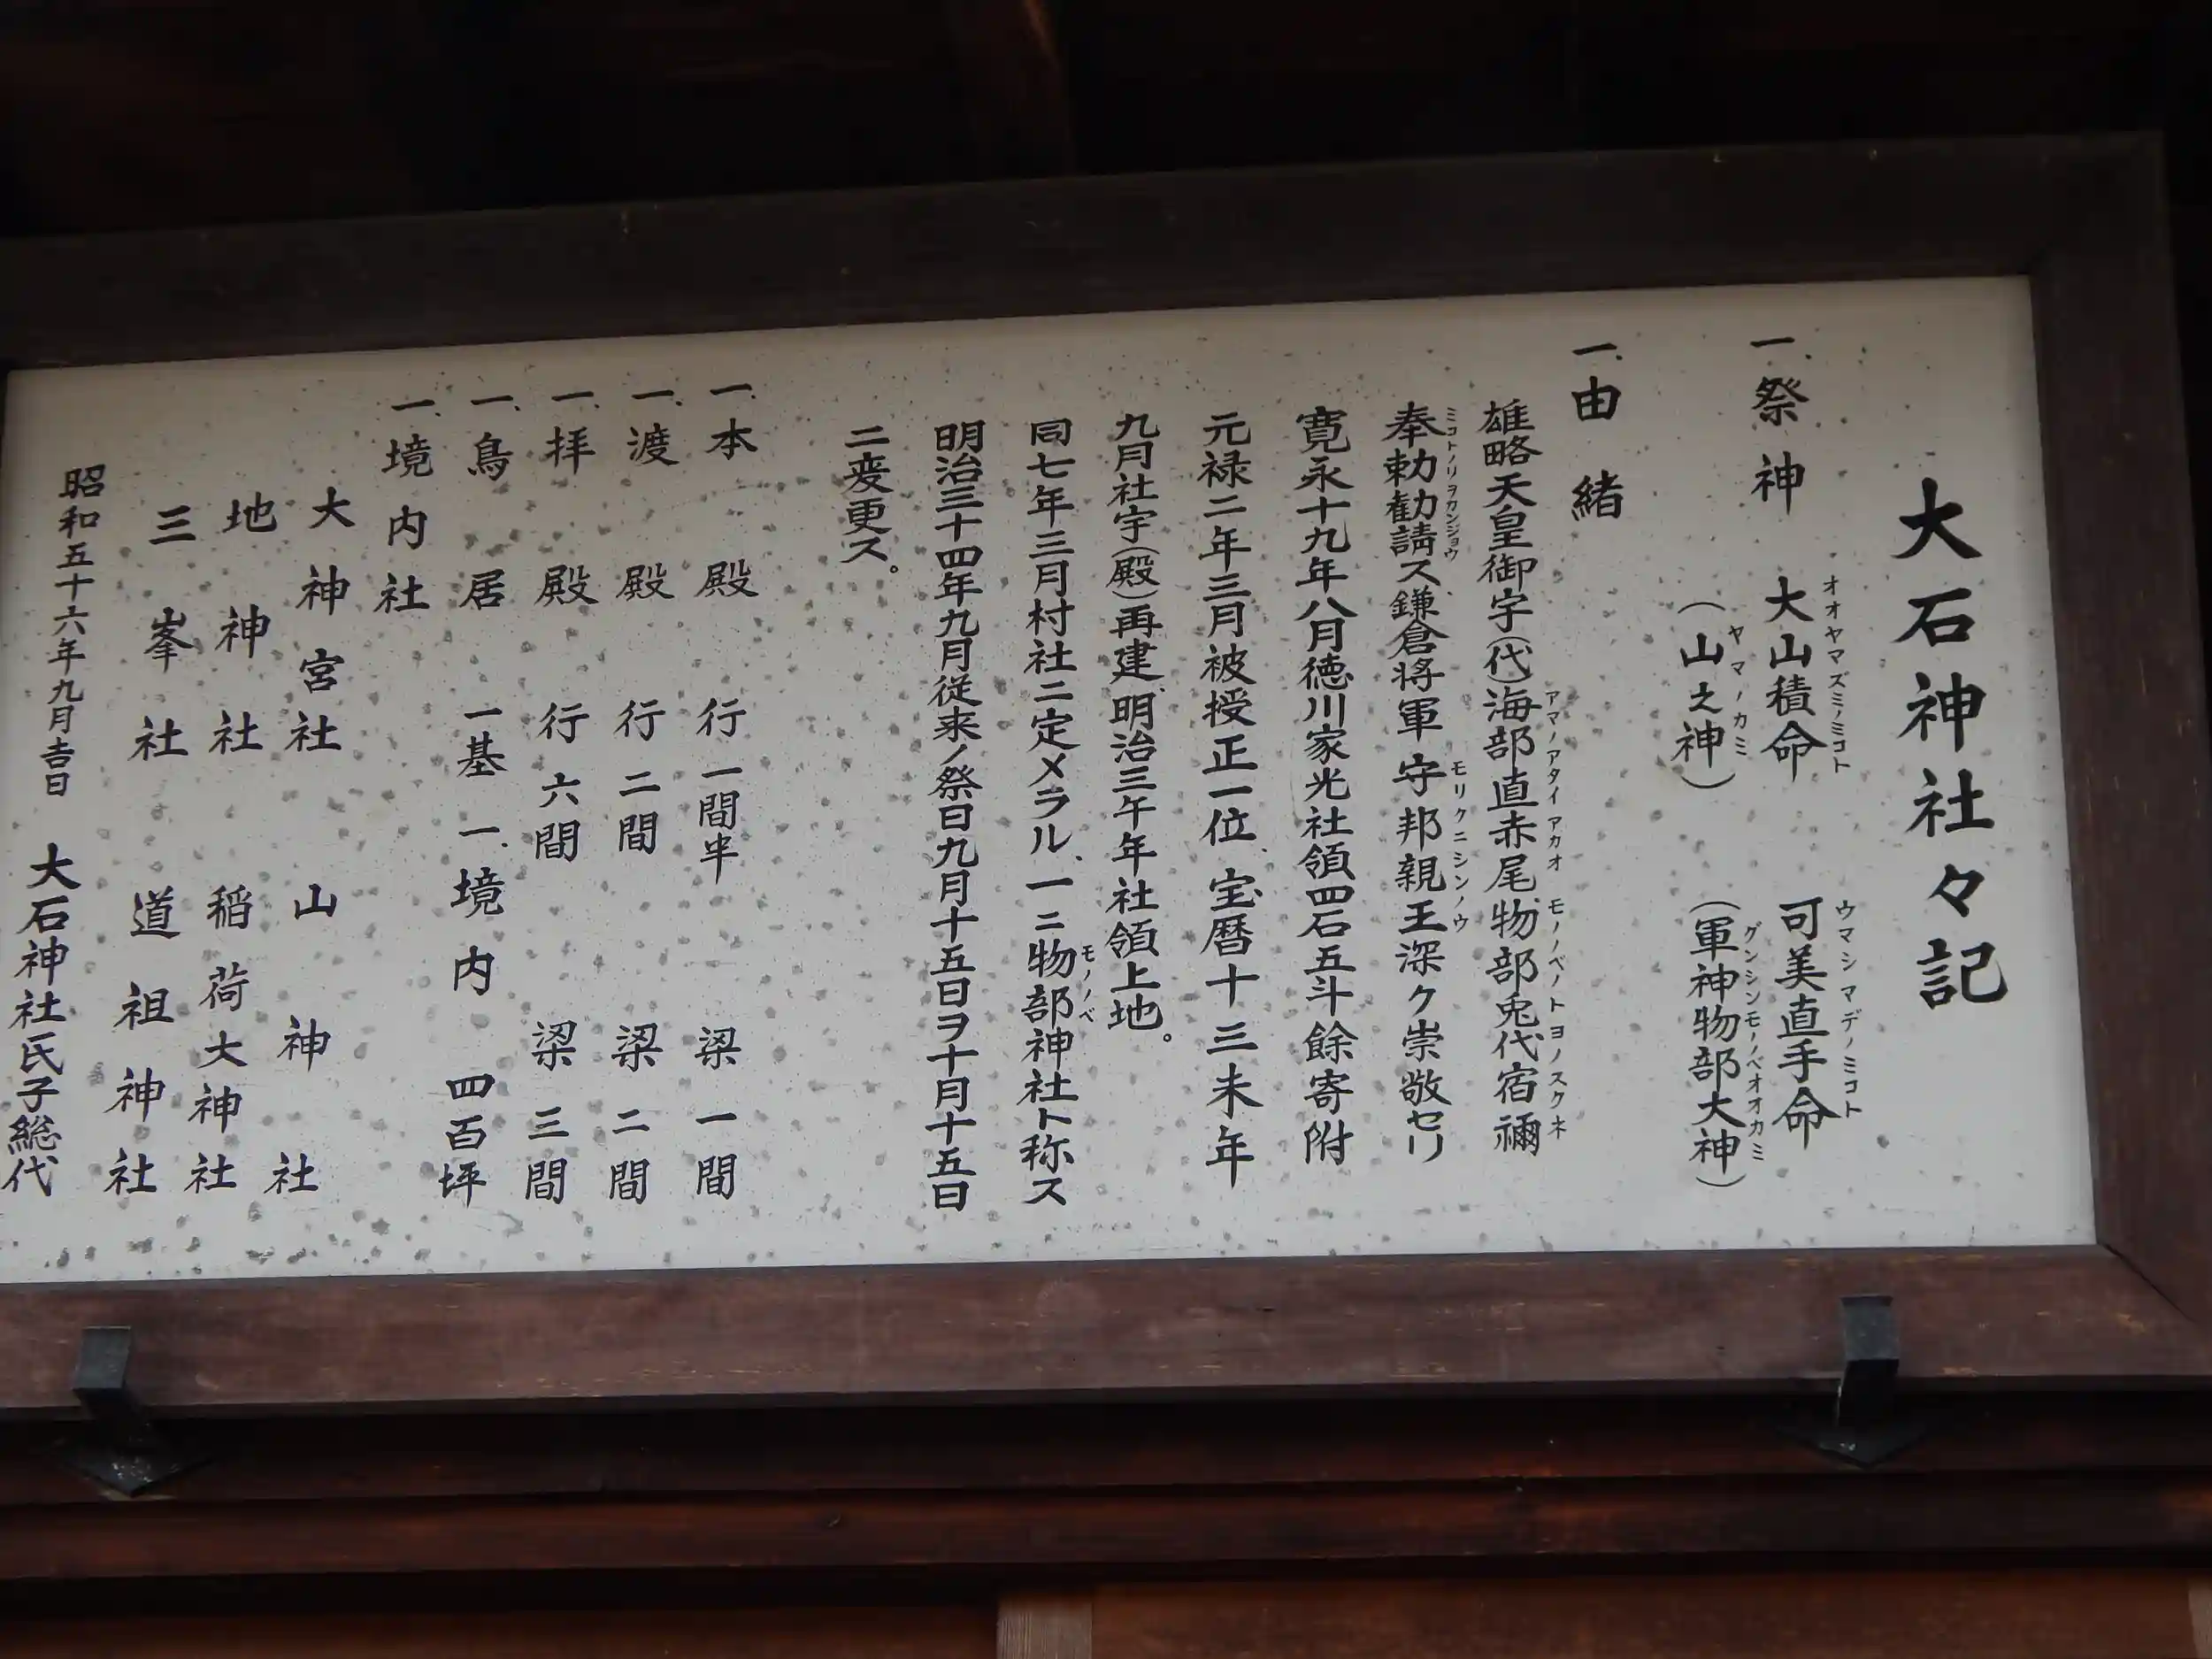 大石神社々記
一、祭神 大山積命 可美直手命
オオヤマズミノミコト ウマシマデノミコト
(山之神) (軍神物部大神)
ヤマノカミ グンシンモノノベオオカミ
一、由緒
雄略天皇御宇(代)海部直赤尾、物部兎代宿禰
アマノアタイアカオ モノノベノトヨノスクネ
奉勅勧請ス、鎌倉将軍守邦親王深ク崇敬セリ
ミコトノリヲカンジョウ モリクニシンノウ
寛永十九年八月徳川家光社領四石五斗餘寄附
元禄二年三月被授正一位、宝暦十三未年
九月社宇(殿)再建、明治三午年社領上地。
同七年三月村社ニ定メラル、一ニ物部神社ト称ス
モノノベ
明治三十四年九月従来ノ祭日九月十五日ヲ十月十五日
ニ変更ス。
一、本殿 行一間半 梁一間
一、渡殿 行二間 梁二間
一、拝殿 行六間 梁三間
一、鳥居 一基 一、境内 四百坪
一、境内社
大神宮社 山神社
地神社 稲荷大神社
三峯社 道祖神社
昭和五十六年九月吉日 大石神社氏子総代